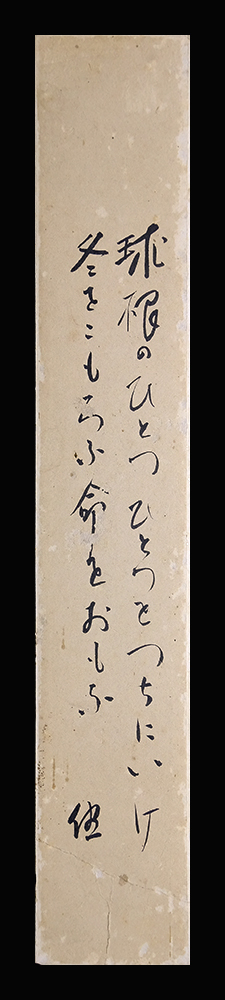 球根のひとつひとつをつちにいけ
冬をこもらふ命をおもふ